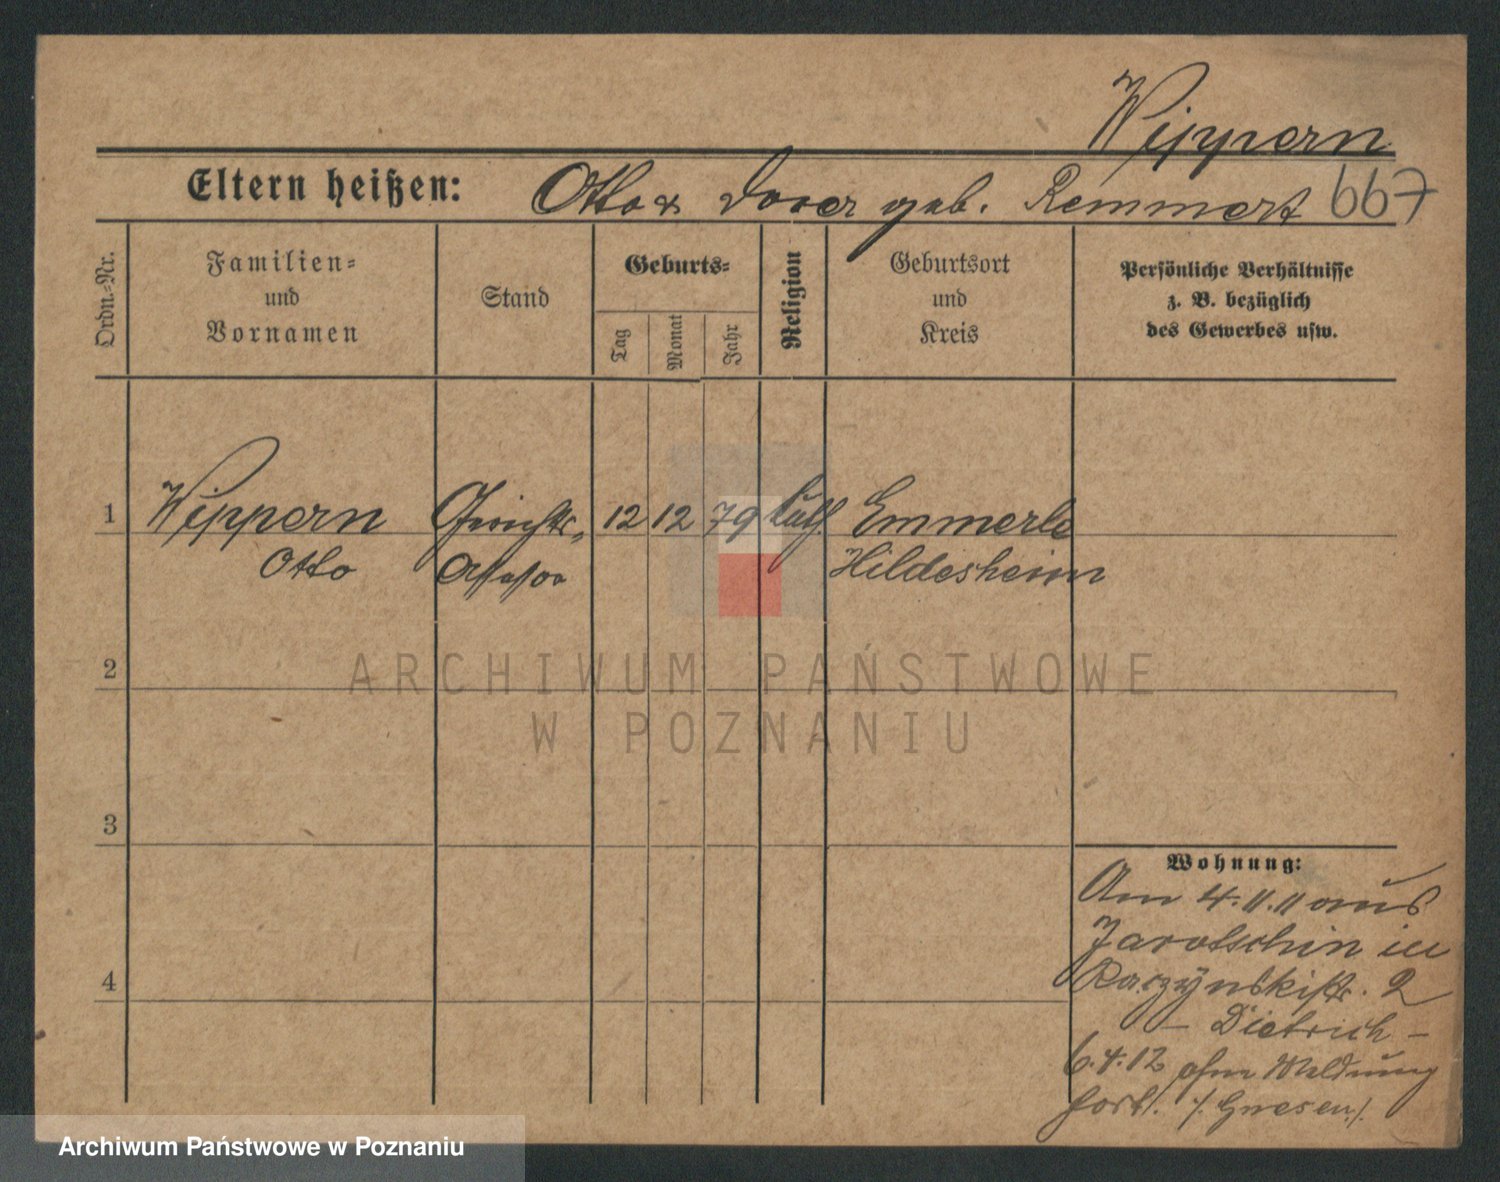 Wippern
Eltern heißen: Otto & geb. Remmert 667
Ordn.-Nr.
Familien-
und
Vornamen
Stand
Geburts-
Tag
Monat
Jahr
Religion
Geburtsort
und
Kreis
Persönliche Verhältnisse
z. B. bezüglich
des Gewerbes usw.
1 Wippern Gerichts- 12 12 79 luth. Emmerle
Otto Assessor Hildesheim
2
ARCHIWUM PAŃSTWOWE
W POZNANIU
3
Wohnung:
Am 4.11.11 aus
Jarotschin in
Raczynskistr. 2
– Dietrich –
6.4.12 ohne Meldung
fort. /. Gnesen /.
4
Archiwum Państwowe w Poznaniu